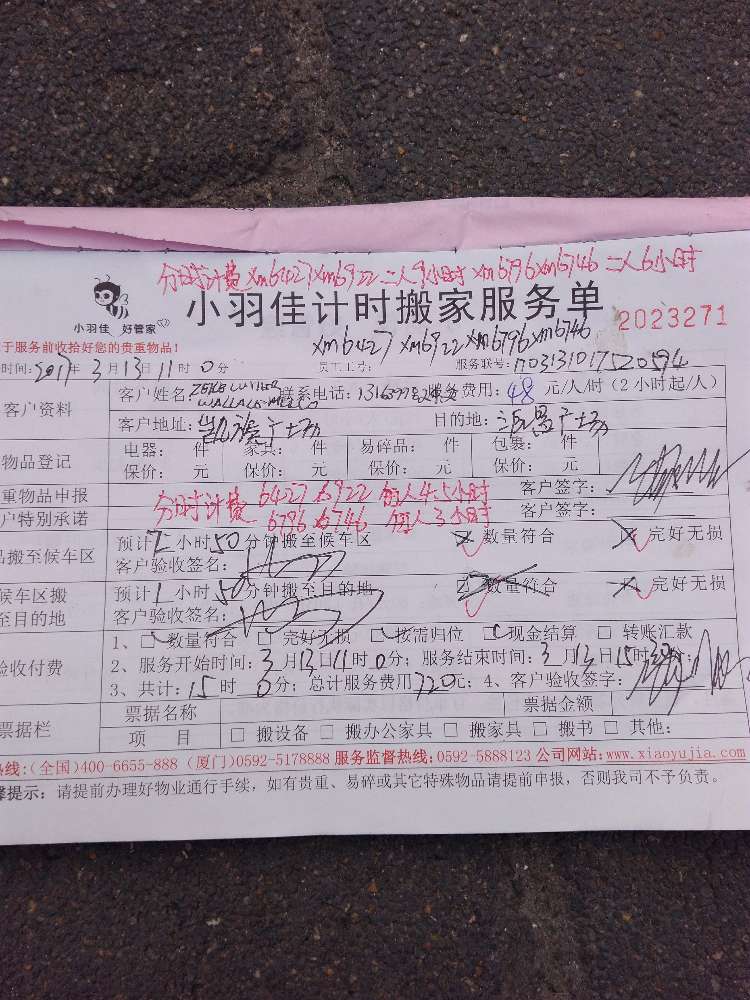 分时计费 xm6427 xm6922 二人9小时 xm6796 xm6746 二人6小时
小羽佳 好管家
小羽佳计时搬家服务单
2023271
于服务前收拾好您的贵重物品!
xm6427 xm6922 xm6796 xm6746
时间:2017年3月13日11时0分 员工工号: 服务联号:
客户资料
客户姓名: 联系电话: 服务费用:48元/人/时(2小时起/人)
客户地址: 目的地:
物品登记
电器: 件 家具: 件 易碎品: 件 包裹: 件
保价: 元 保价: 元 保价: 元 保价: 元
重物品申报
分时计费 6427 6922 每人4.5小时
客户签字:
户特别承诺
6796 6746 每人3小时
客户签字:
品搬至候车区
预计 小时50分钟搬至候车区 数量符合 完好无损
客户验收签名:
候车区搬
至目的地
预计1小时50分钟搬至目的地 数量符合 完好无损
客户验收签名:
验收付费
1、□数量符合 □完好无损 □按需归位 □现金结算 □转账汇款
2、服务开始时间:3月13日11时0分;服务结束时间:3月13日15时30分;
3、共计:15时0分;总计服务费用720元;4、客户验收签字:
票据栏
票据名称 票据金额
项 目 □搬设备 □搬办公家具 □搬家具 □搬书 □其他:
热线:(全国)400-6655-888 (厦门)0592-5178888 服务监督热线:0592-5888123 公司网站:www.xiaoyujia.com
馨提示:请提前办理好物业通行手续,如有贵重、易碎或其它特殊物品请提前申报,否则我司不予负责。